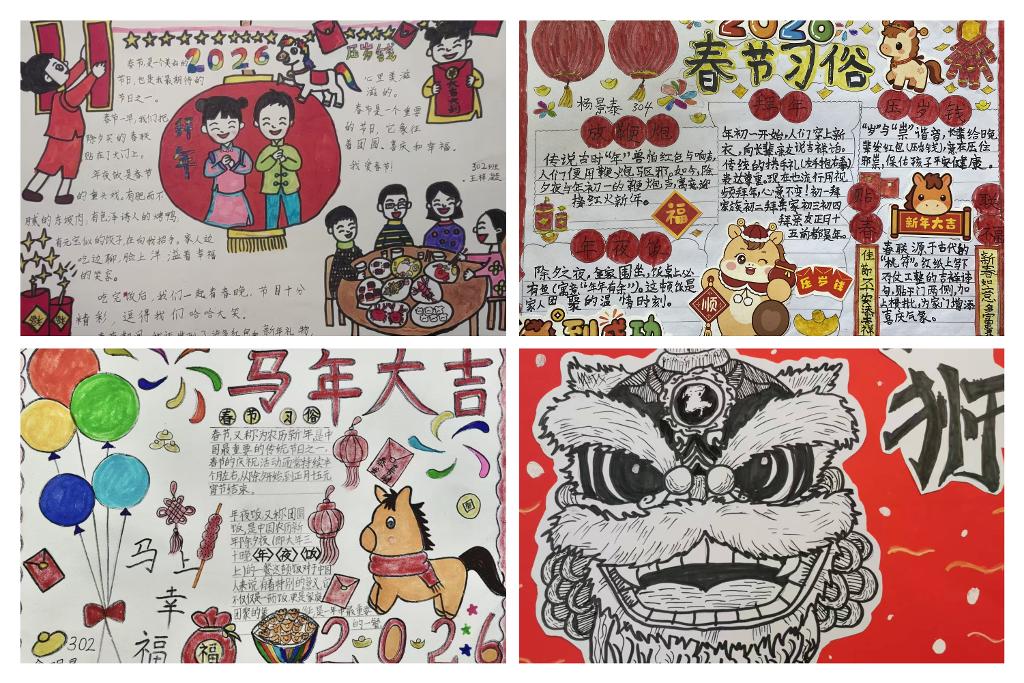 2026
压岁钱
春节,是个美好的
节日,也是我最期待的
节日之一。
春节一早,我们把
除夕买的春联
贴在了大门上。
年夜饭是春节
的重头戏。有肥而不
腻的
有
的烤鸭,
有元宝似的饺子在向我招手。家人边
吃边聊,脸上洋溢着幸福
的笑容。
吃完饭后,我们一起看春晚,节目十分
精彩,逗得我们哈哈大笑。
拜年
心里美滋
滋的。
春节是一个重要
的节日,它象征
着团圆、喜庆和幸福。
我爱春节!
302班
2026
春节习俗
杨景泰 304
放鞭炮
传说古时“年”兽怕红色与响声,
人们便用鞭炮驱邪。如今,除
夕夜与年初一的鞭炮声,寓意迎
接红火新年。
福
年夜饭
除夕夜,全家围坐,饭桌上必
有鱼(寓意“年年有余”)。这顿饭是
家人团聚的温情时刻。
拜年
年初一开始,人们穿上新
衣,向长辈亲友说吉祥话。
传统的拱手礼(左手抱右拳)
表达尊重。现在也流行用视
频拜年,心意不变!初一拜
家族初二拜
初三初四
拜亲友正日十
五前都算年。
顺
压岁钱
压岁钱
“岁”与“祟”谐音,长辈给晚
辈发红包(压岁钱),意在压住
邪祟,保佑孩子平安健康。
贴春联
福
新年大吉
春联源于古代的
“桃符”。红纸上写下
对仗工整的吉祥诗
句,贴于门两侧,加
上横批,为家门增添
喜庆气氛。
新春如意多富贵
到成功
马年大吉
春节习俗
春节,又称为农历新年,是中
国最重要的传统节日之一。
春节的庆祝活动通常持续半
个月左右,从除夕开始到正月十五元
宵节结束。
年夜饭,又称团圆
饭,是中国农历新
年除夕夜(即大年三
十晚
年夜饭
上)的一餐,这顿饭对于中国
人来说,有着特别的意义,它
不仅仅是一顿饭,更是家庭
团聚的
年中最重要
的一餐
马上幸福
福
302
2026
狮